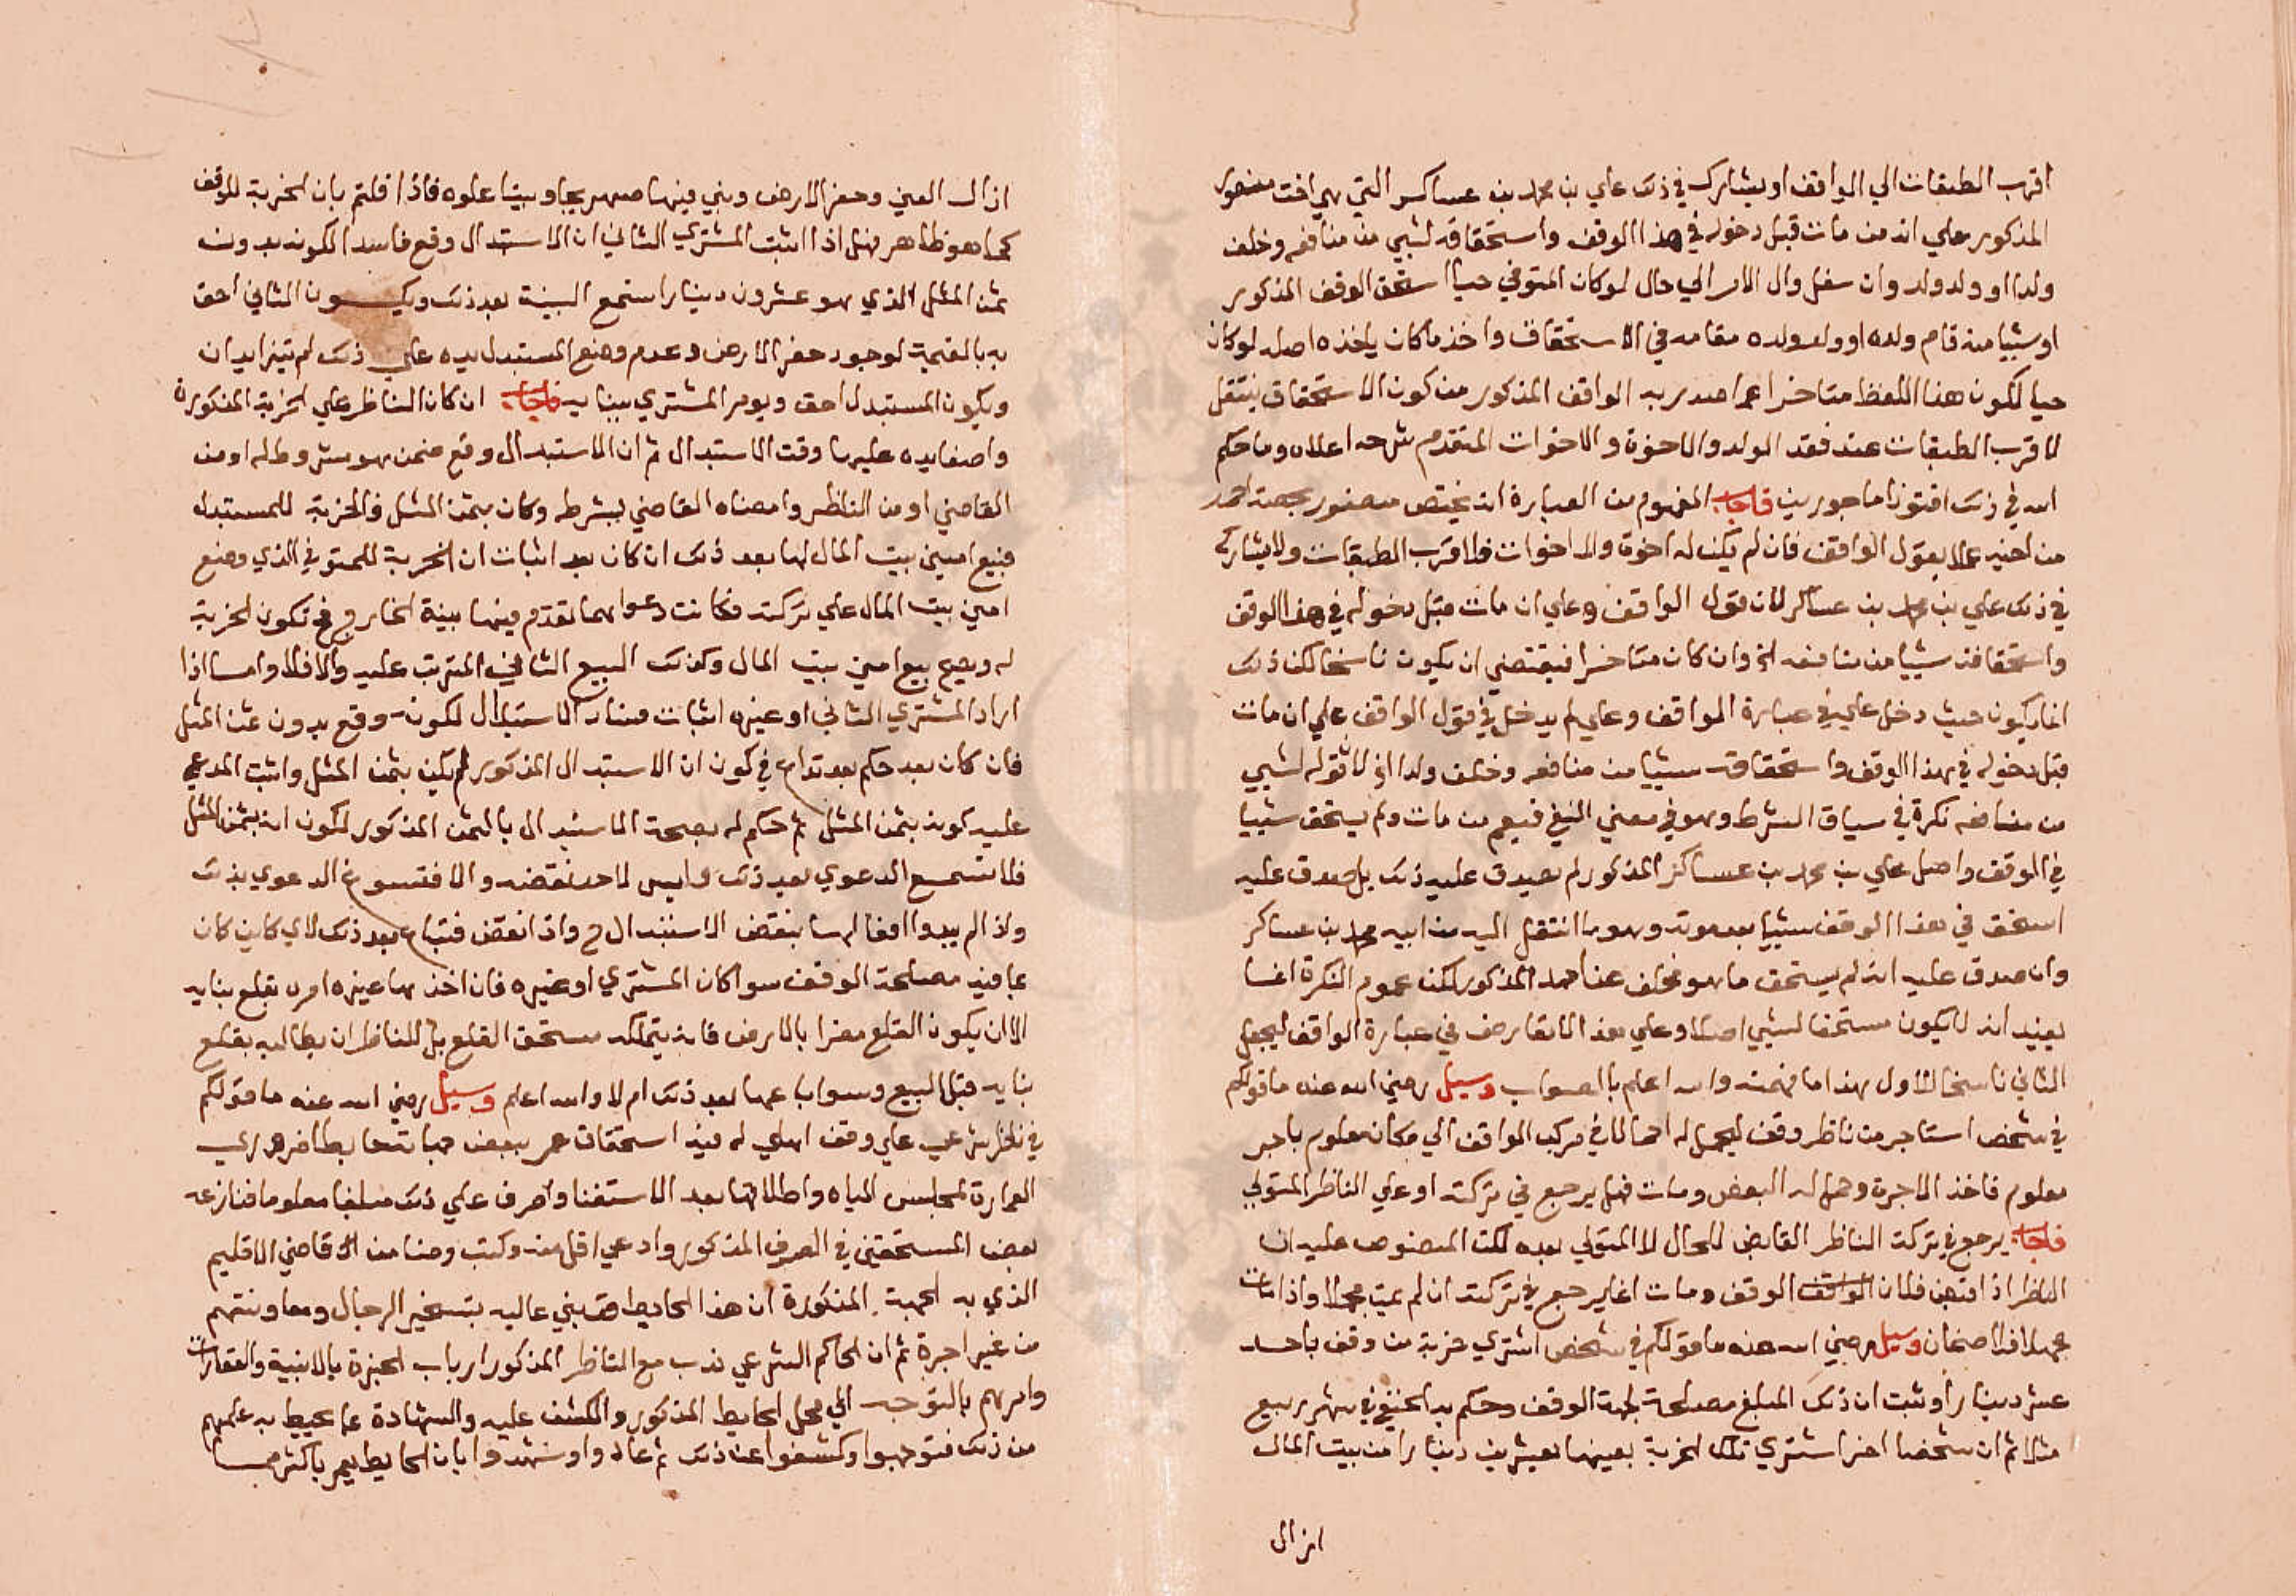 اقرب الطبقات الي الواقف او يشارك في ذلك علي بن محمد بن عساكر التي هي اخت منصور
المذكور علي انه من مات قبل دخوله في هذا الوقف واستحقاقه لشيي من منافعه وخلف
ولدا او ولد ولد وان سفل وال الامر الي حال لو كان المتوفي حيا استحق الوقف المذكور
او شيا منه قام ولده او ولد ولده مقامه في الاستحقاق واخذ ما كان ياخذه اصله لو كان
حيا لكون هذا اللفظ متاخرا عما صدر به الواقف المذكور من كون الاستحقاق ينتقل
لاقرب الطبقات عند فقد الولد والاخوة والاخوات المتقدم شرحه اعلاه وما حكم
الله في ذلك افتونا ماجورين فاجاب المفهوم من العبارة انه يختص منصور بحصة احمد
من اخيه عملا بقول الواقف فان لم يكن له اخوة ولا اخوات فلاقرب الطبقات ولا يشاركه
في ذلك علي بن محمد بن عساكر لان قول الواقف وعلي ان مات قبل دخوله في هذا الوقف
واستحقاقه شييا من منافعه الخ وان كان متاخرا فيقتضي ان يكون ناسخا لكن ذلك
انما يكون حيث دخل علي في عبارة الواقف وعلي لم يدخل في قول الواقف علي ان مات
قبل دخوله في هذا الوقف واستحقاقه شييا من منافعه وخلف ولدا الخ لا قوله لشيي
من منافعه نكرة في سياق الشرط وهو في معني النفي فيعم من مات ولم يستحق شييا
في الوقف واصل علي بن محمد بن عساكر المذكور لم يصدق عليه ذلك بل صدق عليه
استحق في هذا الوقف شييا بعد موته وهو ما انتقل اليه من ابيه محمد بن عساكر
وان صدق عليه انه لم يستحق ما هو مخلف عن احمد المذكور لكن عموم النكرة انما
يفيد انه لا يكون مستحقا لشيي اصلا وعلي هذا لا تعارض في عبارة الواقف ليجعل
الثاني ناسخا للاول هذا ما فهمته والله اعلم بالصواب وسيل رضي الله عنه ما قولكم
في شخص استاجر من ناظر وقف ليحمل له احمالا في مركب الواقف الي مكان معلوم باجر
معلوم فاخذ الاجرة وحمل له البعض ومات فهل يرجع في تركته او علي الناظر المتولي
فاجاب يرجع في تركة الناظر القابض للحال لا المتولي بعده لكن المنصوص عليه ان
الناظر اذا قبض فلان الواقف الوقف ومات انما يرجع في تركته ان لم يمت مجهلا واذا مات
مجهلا فلا ضمان وسيل رضي الله عنه ما قولكم في شخص اشتري خربة من وقف باحد
عشر دينارا وثبت ان ذلك المبلغ مصلحة لجهة الوقف وحكم به الحنفي في شهر ربيع
مثلا ثم ان شخصا اخر اشتري تلك الخربة بعينها بعشرين دينارا من بيت المال
ازال
ازال العيني وحفر الارض وبني فيها صهريجا وبيتا علوه فاذا قلتم بان الخربة للوقف
كما هو ظاهر فهل اذا اثبت المشتري الثاني ان الاستبدال وقع فاسدا لكونه بدون
ثمن المثل الذي هو عشرون دينارا تسمع البينة بعد ذلك ويكون الثاني احق
به بالقيمة لوجود حفر الارض وعدم وضع المستبدل يده علي ذلك ام يتزايدان
ويكون المستبدل احق ويومر المشتري ببنايه فاجاب ان كان الناظر علي الخربة المذكورة
واضعا يده عليها وقت الاستبدال ثم ان الاستبدال وقع ممن هو مشروط له او من
القاضي او من الناظر وامضاه القاضي بشرطه وكان بثمن المثل فالخربة للمستبدل
فبيع امين بيت المال لها بعد ذلك ان كان بعد اثبات ان الخربة للمتوفي الذي وضع
امين بيت المال علي تركته فكانت دعواهما تقدم فيها بينة الخارج في تكون الخربة
له ويصح بيع امين بيت المال وكذلك البيع الثاني المترتب عليه والا فلا واما اذا
اراد المشتري الثاني او غيره اثبات فساد الاستبدال لكونه وقع بدون ثمن المثل
فان كان بعد حكم بعد تداع في كون ان الاستبدال المذكور لم يكن بثمن المثل واثبت المدعي
عليه كونه بثمن المثل ثم حكم له بصحة الاستبدال بالثمن المذكور لكون انه بثمن المثل
فلا تسمع الدعوي بعد ذلك وليس لاحد نقضه والا فتسوغ الدعوي بذلك
واذا لم يبدوا دفعا لها بنقض الاستبدال ح واذا نقض فتباع بعد ذلك لاي كاين كان
بما فيه مصلحة الوقف سوا كان المشتري او غيره فان اخذها غيره امر بقلع بنايه
الا ان يكون القلع مضرا بالارض فانه يتملكه مستحق القلع بل للناظر ان يطالبه بقلع
بنايه قبل البيع وسوا باعها بعد ذلك ام لا والله اعلم وسيل رضي الله عنه ما قولكم
في ناظر شرعي علي وقف اهلي له فيه استحقاق عمر ببعض جهاته حايطا ضروري
العمارة لمحابس المياه واطلاقها بعد الاستغنا وصرف علي ذلك مبلغا معلوما فنازعه
بعض المستحقين في الصرف المذكور وادعي اقل منه وكتب وصنا من الا قاضي الاقليم
الذي به الجهة المذكورة ان هذا الحايط قد بني عاليه بتسخير الرجال ومعاونتهم
من غير اجرة ثم ان الحاكم الشرعي ندب مع الناظر المذكور ارباب الخبرة بالابنية والعقارات
وامرهم بالتوجه الي محل الحايط المذكور والكشف عليه والشهادة بما يحيط به علمهم
من ذلك فتوجهوا وكشفوا عن ذلك ثم عادوا وشهدوا بان الحايط يعمر باكثر مما